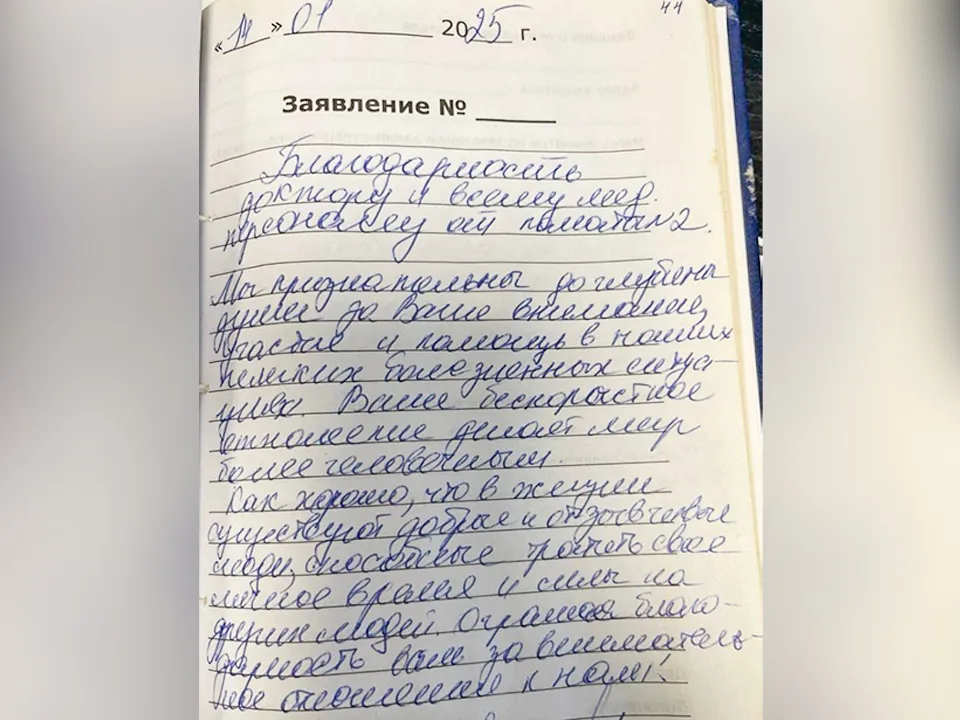 44
«14» 01 2025 г.
Заявление № ______
Благодарность
доктору и всему мед.
персоналу от палаты №2.
Мы признательны до глубины
души за Ваше внимание,
участие и помощь в наших
нелегких болезненных ситуа-
циях. Ваше бескорыстное
отношение делает мир
более человечным.
Как хорошо, что в жизни
существуют добрые и отзывчивые
люди, способные тратить свое
личное время и силы на
других людей. Огромная благо-
дарность вам за вниматель-
ное отношение к нам!